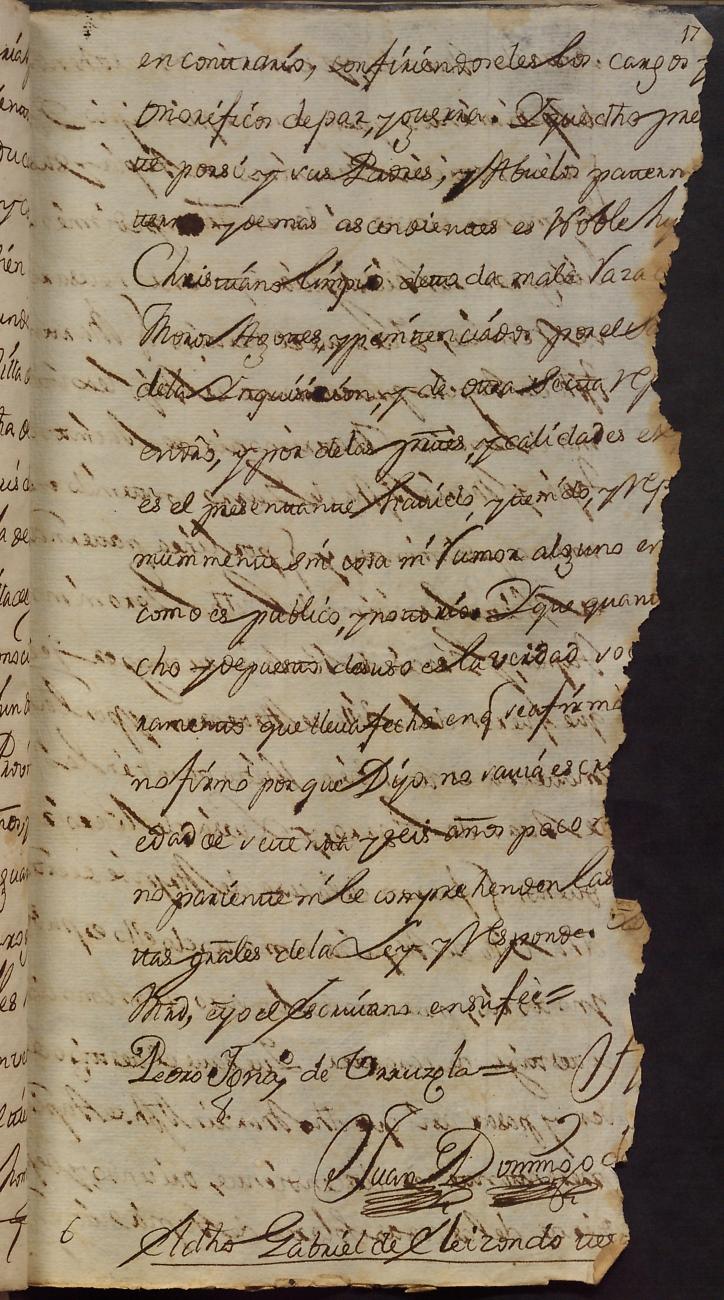 17
en contrario, confiriendoseles los cargos
onorificos de paz, y guerra. Y que dho pre
te por si y sus Padres, y Abuelos patern
terno y demas ascendientes es Noble hi
Christiano limpio de toda mala raza
Moros Agotes, y penitenciados por el S
de la Inquisicion, y de otra Secta rep
entrò, y por de las partes, y calidades ex
es el presentante havido, y tenido, y rep
munmente sin cosa ni rumor alguno en
como es publico, y notorio. Y que quant
cho y depuesto de uso es la verdad so
ramento que lleva fecho en q se afirmò
no firmò por que Dijo no savia escri
edad de setenta y seis años poco
no pariente ni le comprehenden las
tas grales de la Ley y Responde.
Mrd, e yo el Escrivano en su fee=
Pedro Igna.º de Urruzola=
Juan Domingo d
6 A dho Gabriel de Eleizondo tes